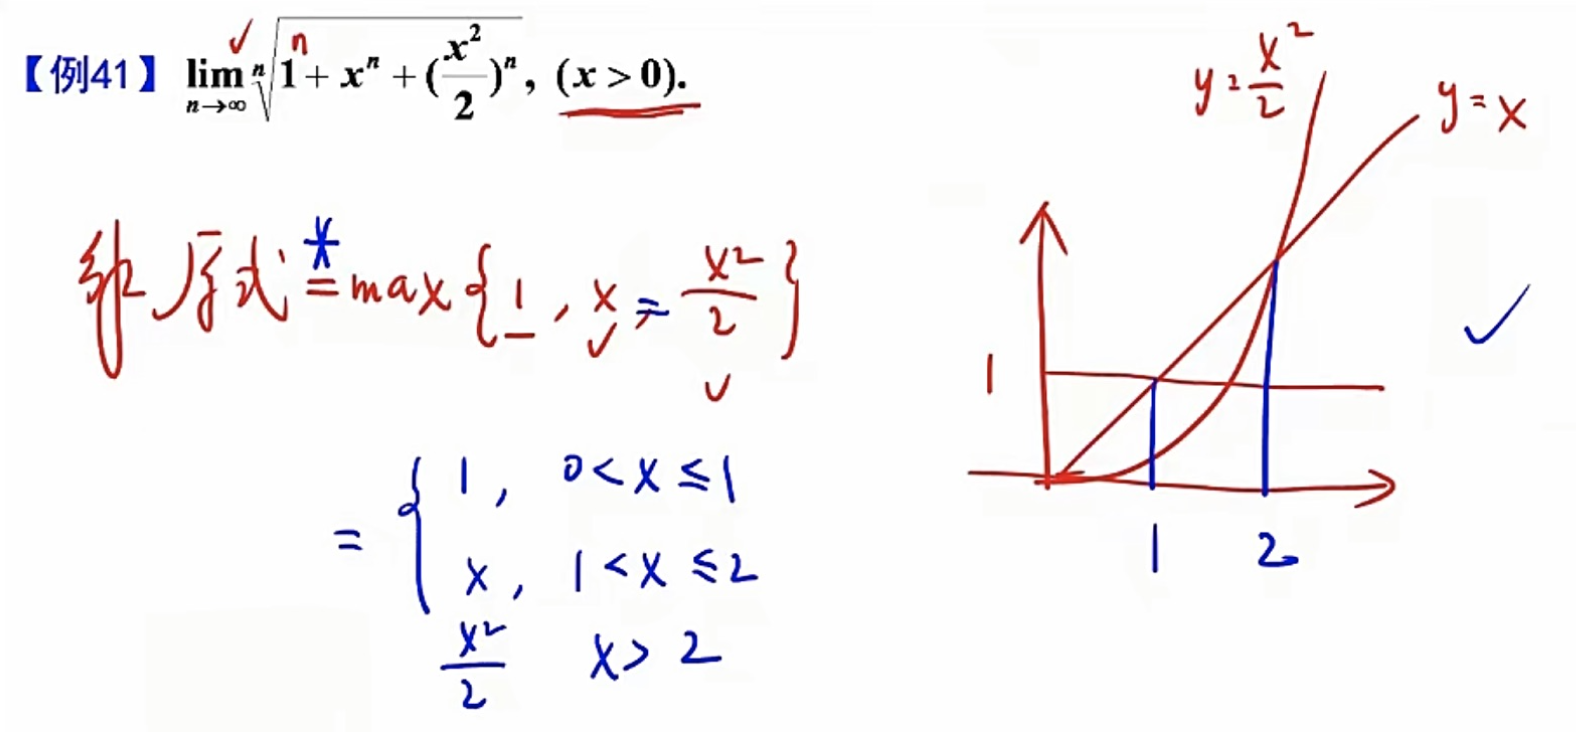 【例41】 lim n→∞ ⁿ√(1ⁿ + xⁿ + (x²/2)ⁿ), (x > 0).
解 原式 = max { 1 , x , x²/2 }
= { 1 , 0 < x ≤ 1
x , 1 < x ≤ 2
x²/2 x > 2
y = x²/2
y = x
1
1 2